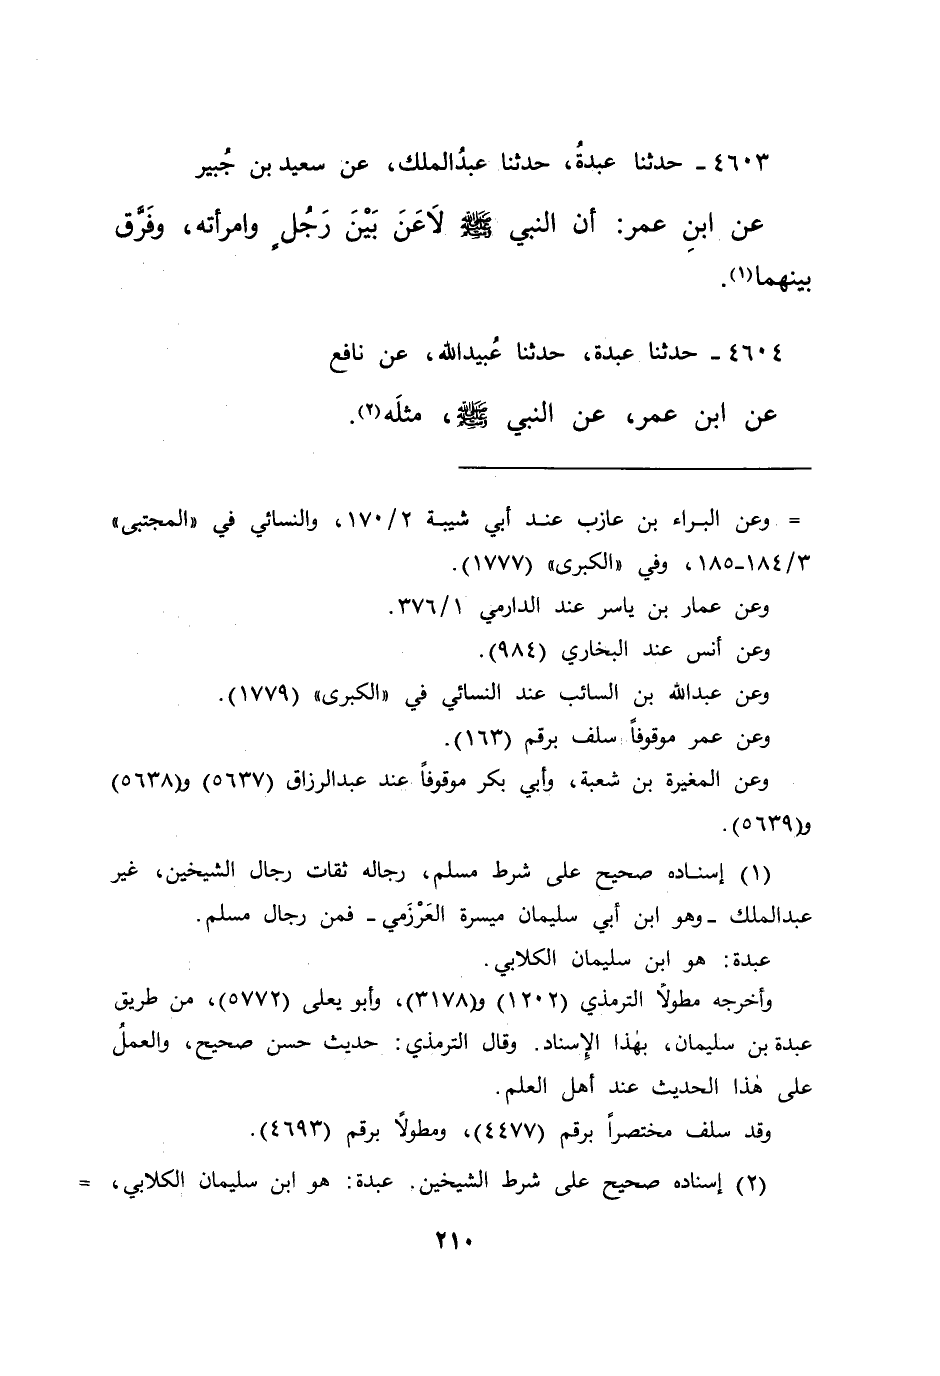 ٤٦٠٣ ـ حدثنا عبدةُ، حدثنا عبدُالملك، عن سعيد بن جُبير
عن ابنِ عمر: أن النبي ﷺ لَاعَنَ بَيْنَ رَجُلٍ وامرأته، وفَرَّق
بينهما(١).
٤٦٠٤ ـ حدثنا عبدة، حدثنا عُبيدالله، عن نافع
عن ابن عمر، عن النبي ﷺ، مثلَه(٢).
= وعن البراء بن عازب عند أبي شيبة ١٧٠/٢، والنسائي في «المجتبى»
١٨٤/٣ـ١٨٥، وفي «الكبرى» (١٧٧٧).
وعن عمار بن ياسر عند الدارمي ٣٧٦/١.
وعن أنس عند البخاري (٩٨٤).
وعن عبدالله بن السائب عند النسائي في «الكبرى» (١٧٧٩).
وعن عمر موقوفاً سلف برقم (١٦٣).
وعن المغيرة بن شعبة، وأبي بكر موقوفاً عند عبدالرزاق (٥٦٣٧) و(٥٦٣٨)
و(٥٦٣٩).
(١) إسناده صحيح على شرط مسلم، رجاله ثقات رجال الشيخين، غير
عبدالملك ـ وهو ابن أبي سليمان ميسرة العَرْزَمي ـ فمن رجال مسلم.
عبدة: هو ابن سليمان الكلابي.
وأخرجه مطولاً الترمذي (١٢٠٢) و(٣١٧٨)، وأبو يعلى (٥٧٧٢)، من طريق
عبدة بن سليمان، بهٰذا الإسناد. وقال الترمذي: حديث حسن صحيح، والعملُ
على هٰذا الحديث عند أهل العلم.
وقد سلف مختصراً برقم (٤٤٧٧)، ومطولاً برقم (٤٦٩٣).
(٢) إسناده صحيح على شرط الشيخين. عبدة: هو ابن سليمان الكلابي، =
٢١٠